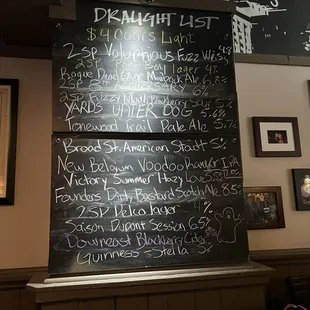 DRAUGHT LIST
$4 Coors Light
2SP Voluptuous Fuzz
2SP Lager 4%
Rogue Dead Guy Maibock Ale 6.8%
6%
2SP
YARDS LAGER DOG 5%
Lonewood Trail Pale Ale 5.%
Broad St. American Stout 5%
New Belgium Voodoo Ranger IPA
Victory Summer Hazy
Founders Dirty Bastard Scotch Ale 8.5%
2SP Delco Lager
Saison Dupont Session 6.5%
Downeast Blackberry Cider 5%
Guinness - Stella